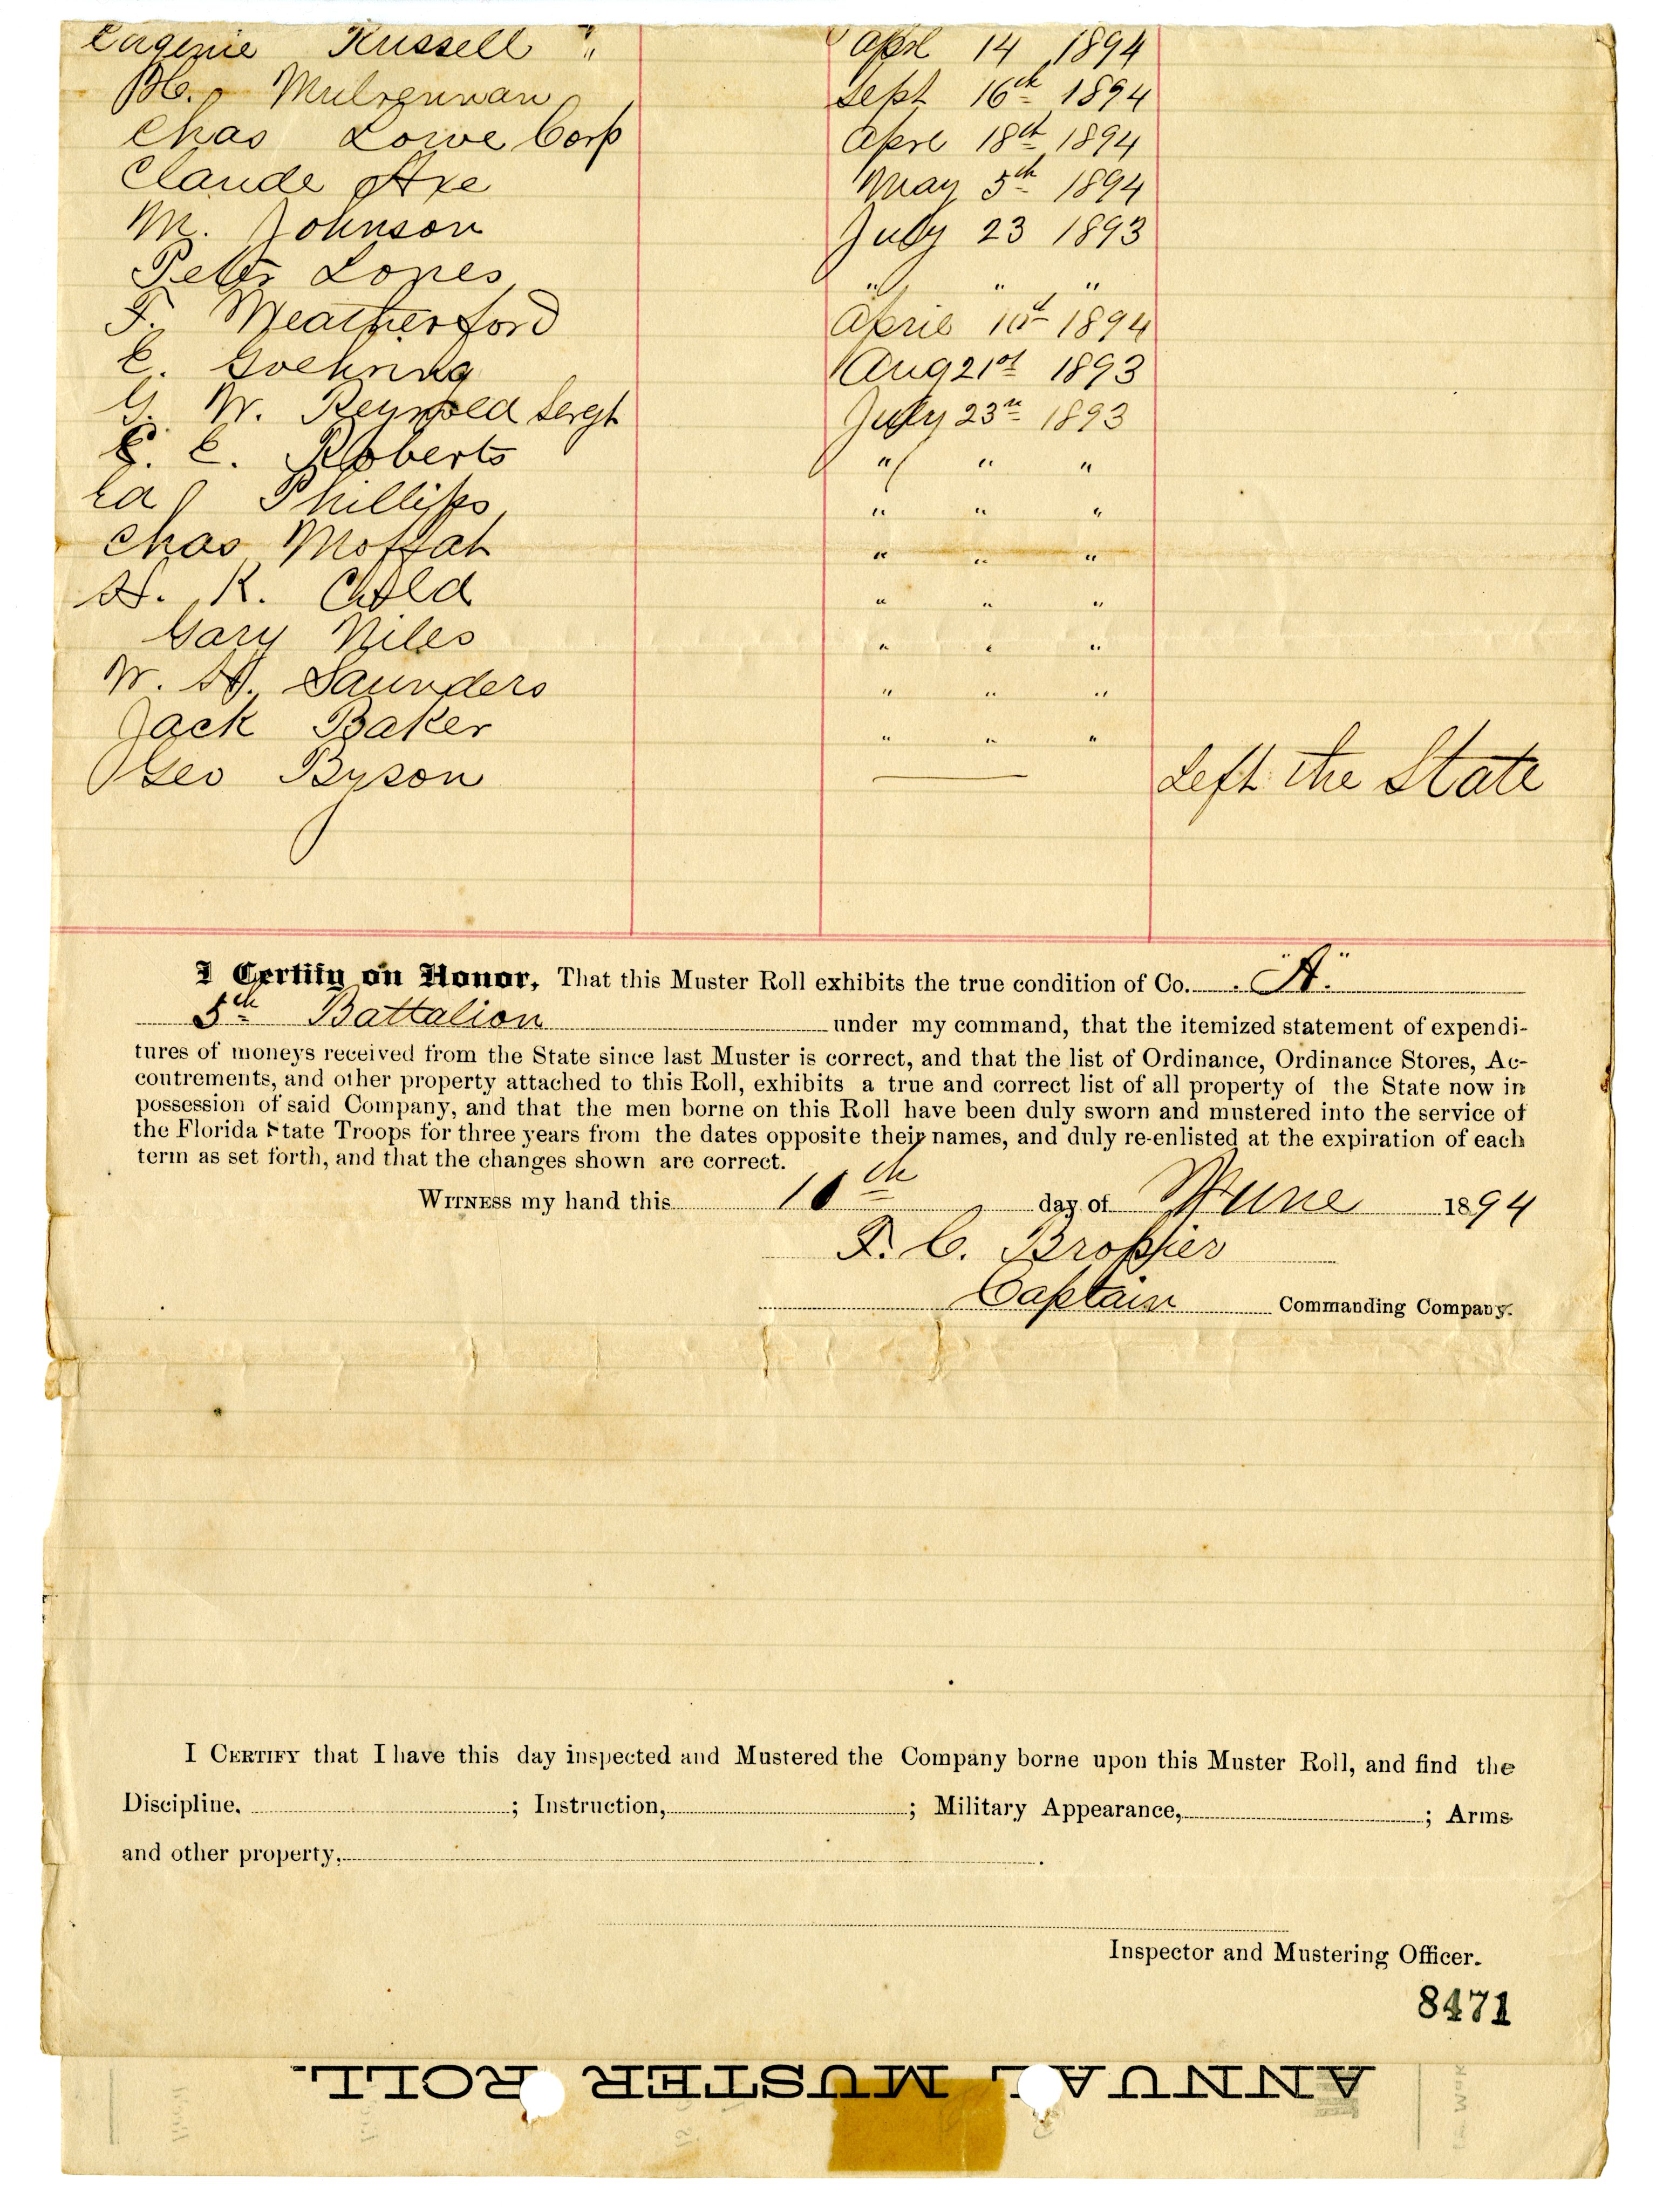 Eugenie Russell " Aprl 14 1894
H. Mulrennan Sept 16th 1894
Chas Lowe Corp Aprl 18th 1894
Claude Axe May 5th 1894
M. Johnson July 23 1893
Peter Lopes " " "
F. Weatherford Aprie 10th 1894
E. Goehring Aug 21st 1893
G. W. Reynold Sergt July 23rd 1893
E. E. Roberts " " "
Ed Phillips " " "
Chas Moffat " " "
H. K. Child " " "
Gary Niles " " "
W. H. Saunders " " "
Jack Baker " " "
Geo Byson — Left the State
I Certify on Honor, That this Muster Roll exhibits the true condition of Co. "A."
5th Battalion under my command, that the itemized statement of expendi-
tures of moneys received from the State since last Muster is correct, and that the list of Ordinance, Ordinance Stores, Ac-
coutrements, and other property attached to this Roll, exhibits a true and correct list of all property of the State now in
possession of said Company, and that the men borne on this Roll have been duly sworn and mustered into the service of
the Florida State Troops for three years from the dates opposite their names, and duly re-enlisted at the expiration of each
term as set forth, and that the changes shown are correct.
WITNESS my hand this 10th day of June 1894
F. C. Brossier
Captain Commanding Company.
I CERTIFY that I have this day inspected and Mustered the Company borne upon this Muster Roll, and find the
Discipline, ; Instruction, ; Military Appearance, ; Arms
and other property, .
Inspector and Mustering Officer.
8471
ANNUAL MUSTER ROLL.